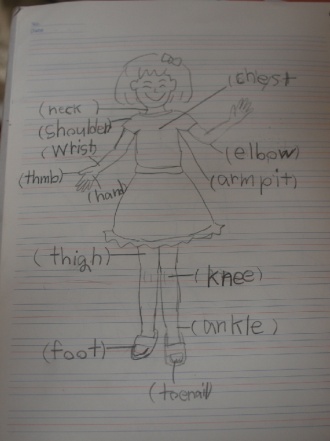 (chest
(neck )
(Shoulder)
(Wrist)
(elbow)
(thmb)
(armpit)
(hand
(thigh)
(knee)
(ankle)
(foot)
(toenail